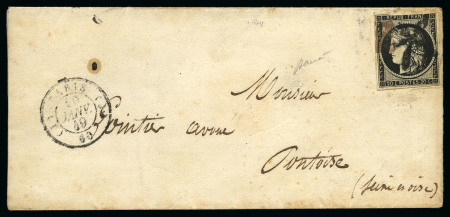 REPUB. FRANC.
20 C. POSTES 20 C.
PARIS
JANV.
49
60
Monsieur
Cointier avoué
Pontoise
(Seine et oise)